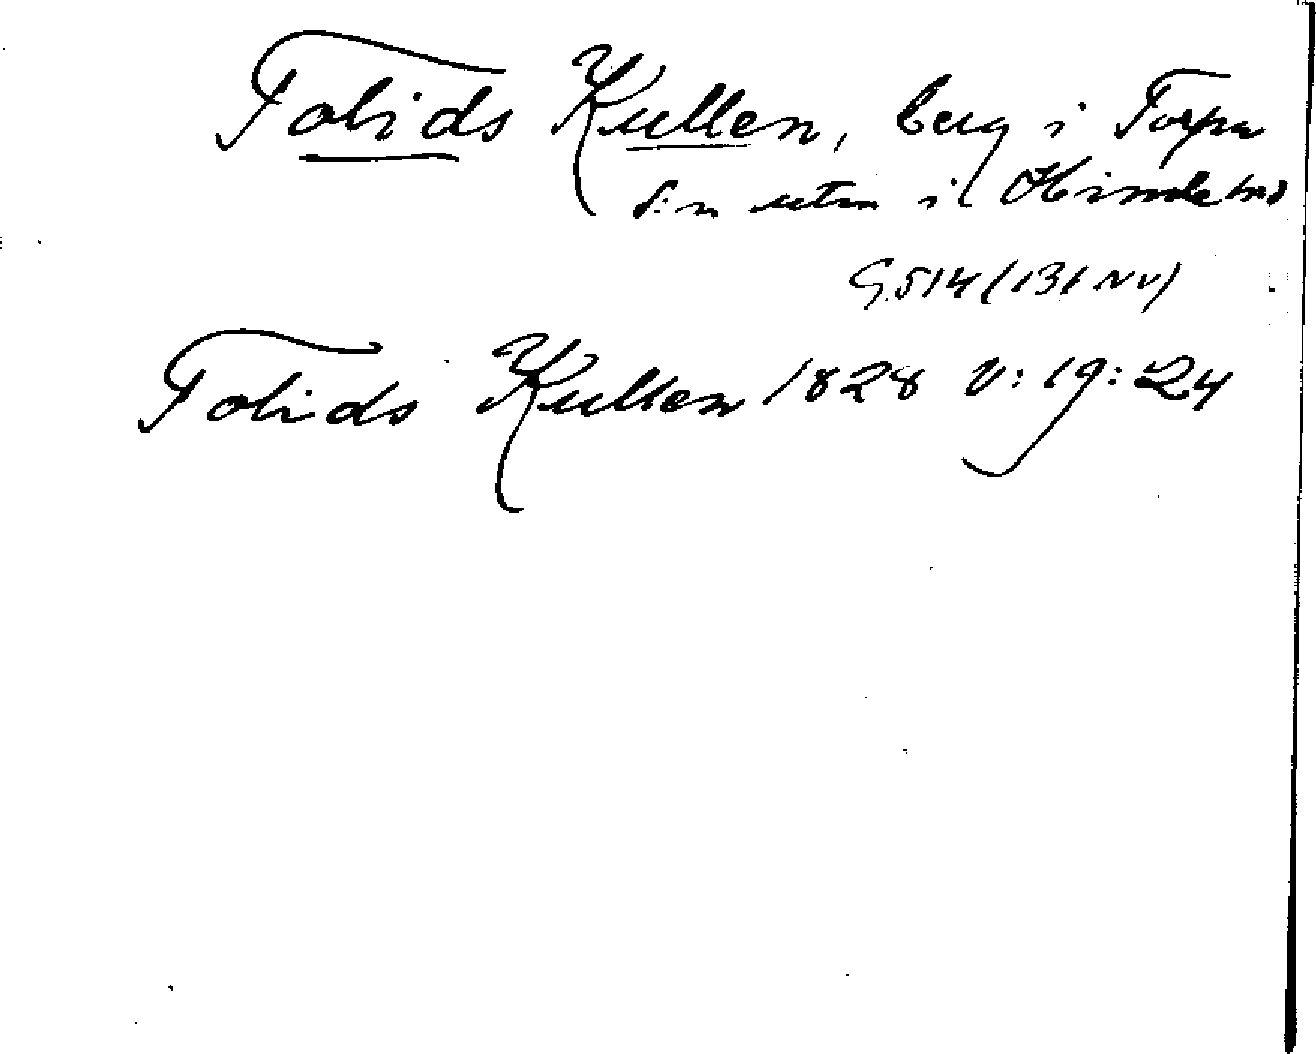 Tolids Kullen, berg i Torpa
s:n utm i Himle hd
G514 (131 NV)
Tolids Kullen 1828 V: 19: 24